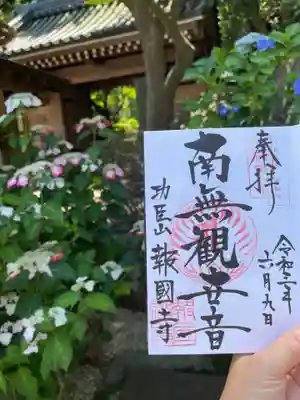 奉拝
南無観世音
功臣山 報國寺
令和二年
六月九日